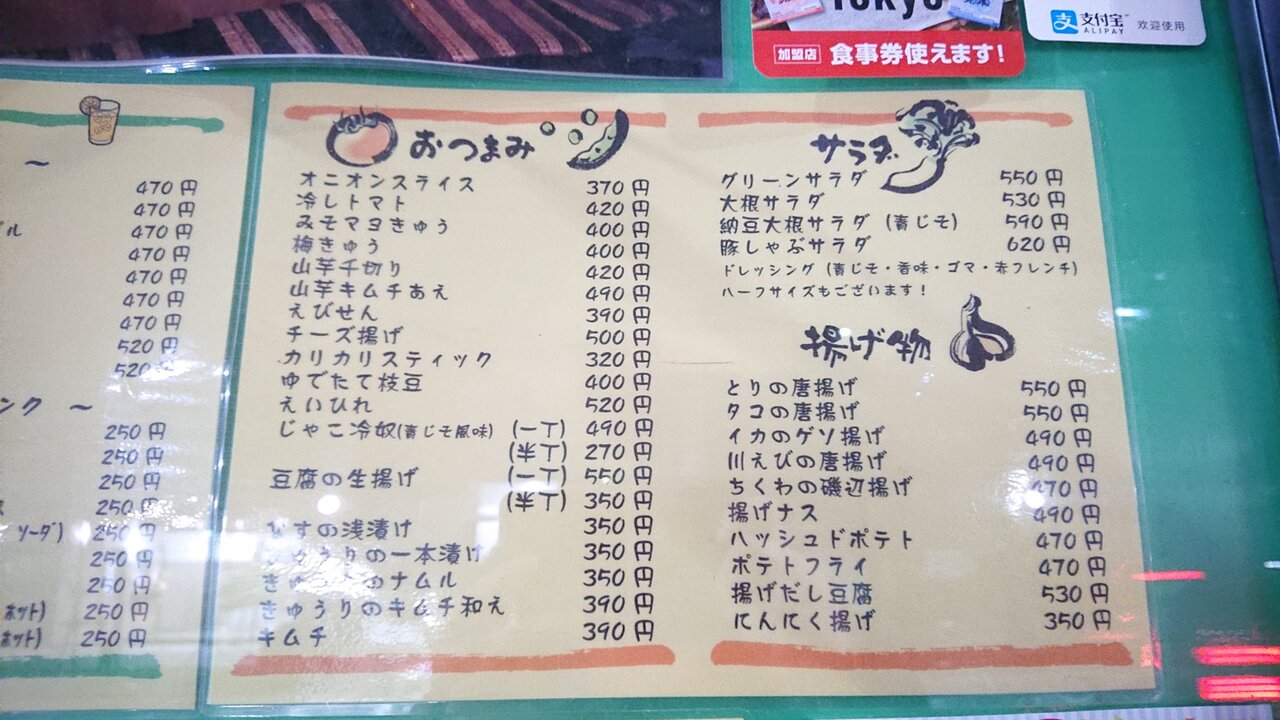 TOKYO
加盟店 食事券使えます!
支 支付宝 ALIPAY 欢迎使用
~
470円
470円
ル 470円
470円
470円
470円
470円
520円
520
ンク ~
250円
250円
250円
ス 250円
ソーダ) 250円
250円
250円
ホット) 250円
ホット) 250円
おつまみ
オニオンスライス 370円
冷しトマト 420円
みそマヨきゅう 400円
梅きゅう 400円
山芋千切り 420円
山芋キムチあえ 490円
えびせん 390円
チーズ揚げ 500円
カリカリスティック 320円
ゆでたて枝豆 400円
えいひれ 520円
じゃこ冷奴(青じそ風味) (一丁) 490円
(半丁) 270円
豆腐の生揚げ (一丁) 550円
(半丁) 350円
なすの浅漬け 350円
きゅうりの一本漬け 350円
きゅうりのナムル 350円
きゅうりのキムチ和え 390円
キムチ 390円
サラダ
グリーンサラダ 550円
大根サラダ 530円
納豆大根サラダ (青じそ) 590円
豚しゃぶサラダ 620円
ドレッシング (青じそ・香味・ゴマ・赤フレンチ)
ハーフサイズもございます!
揚げ物
とりの唐揚げ 550円
タコの唐揚げ 550円
イカのゲソ揚げ 490円
川えびの唐揚げ 490円
ちくわの磯辺揚げ 470円
揚げナス 490円
ハッシュドポテト 470円
ポテトフライ 470円
揚げだし豆腐 530円
にんにく揚げ 350円